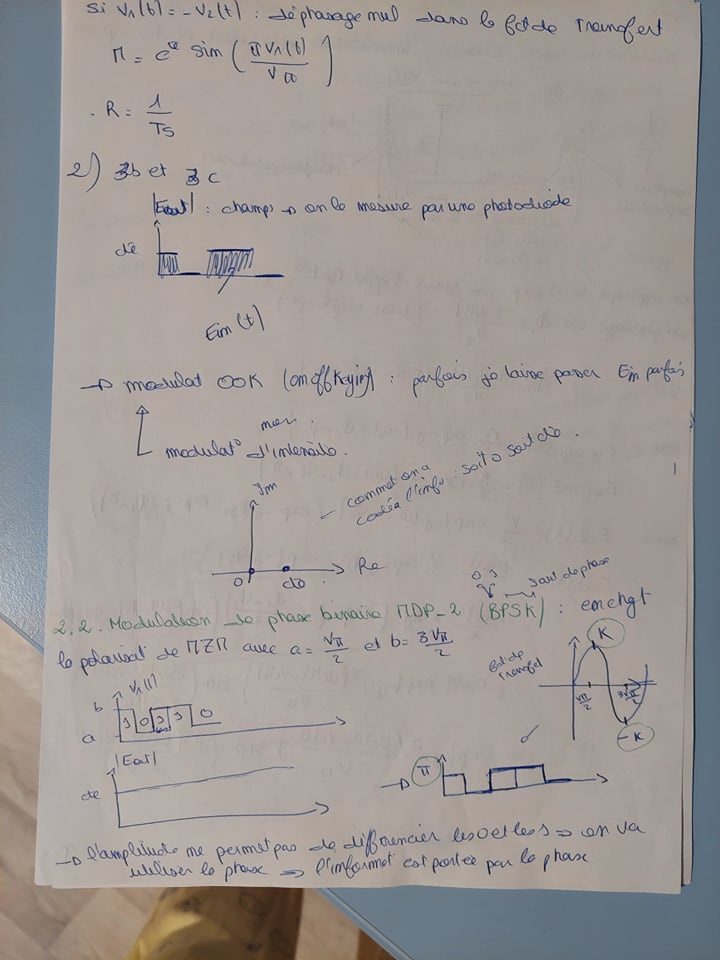 si V₁(t) = -V₂(t) : déphasage nul dans la fct de Transfert
Π = cᵗᵉ sin (π V₁(t) / Vπ)
. R = 1 / Ts
2) 3b et 3c
|Eout| : champs → on le mesure par une photodiode
de
Eim(t)
→ modulat° OOK (on off Keying) : parfois je laisse passer Ein parfois
non.
modulat° d'intensité.
Im
comment on a
codée l'info : soit 0 soit do.
0 do Re
0 1
saut de phase
2.2. Modulation de phase binaire MDP-2 (BPSK) : en chgt
la polarisat° de MZM avec a = Vπ/2 et b = 3Vπ/2
fct de
transfert
K
Vπ/2 3Vπ/2
-K
V₁(t)
b
a
1 0 1 1 0
|Eout|
de
→ π
0
→ l'amplitude ne permet pas de différencier les 0 et les 1 ⇒ on va
utiliser la phase ⇒ l'informat° est portée par la phase